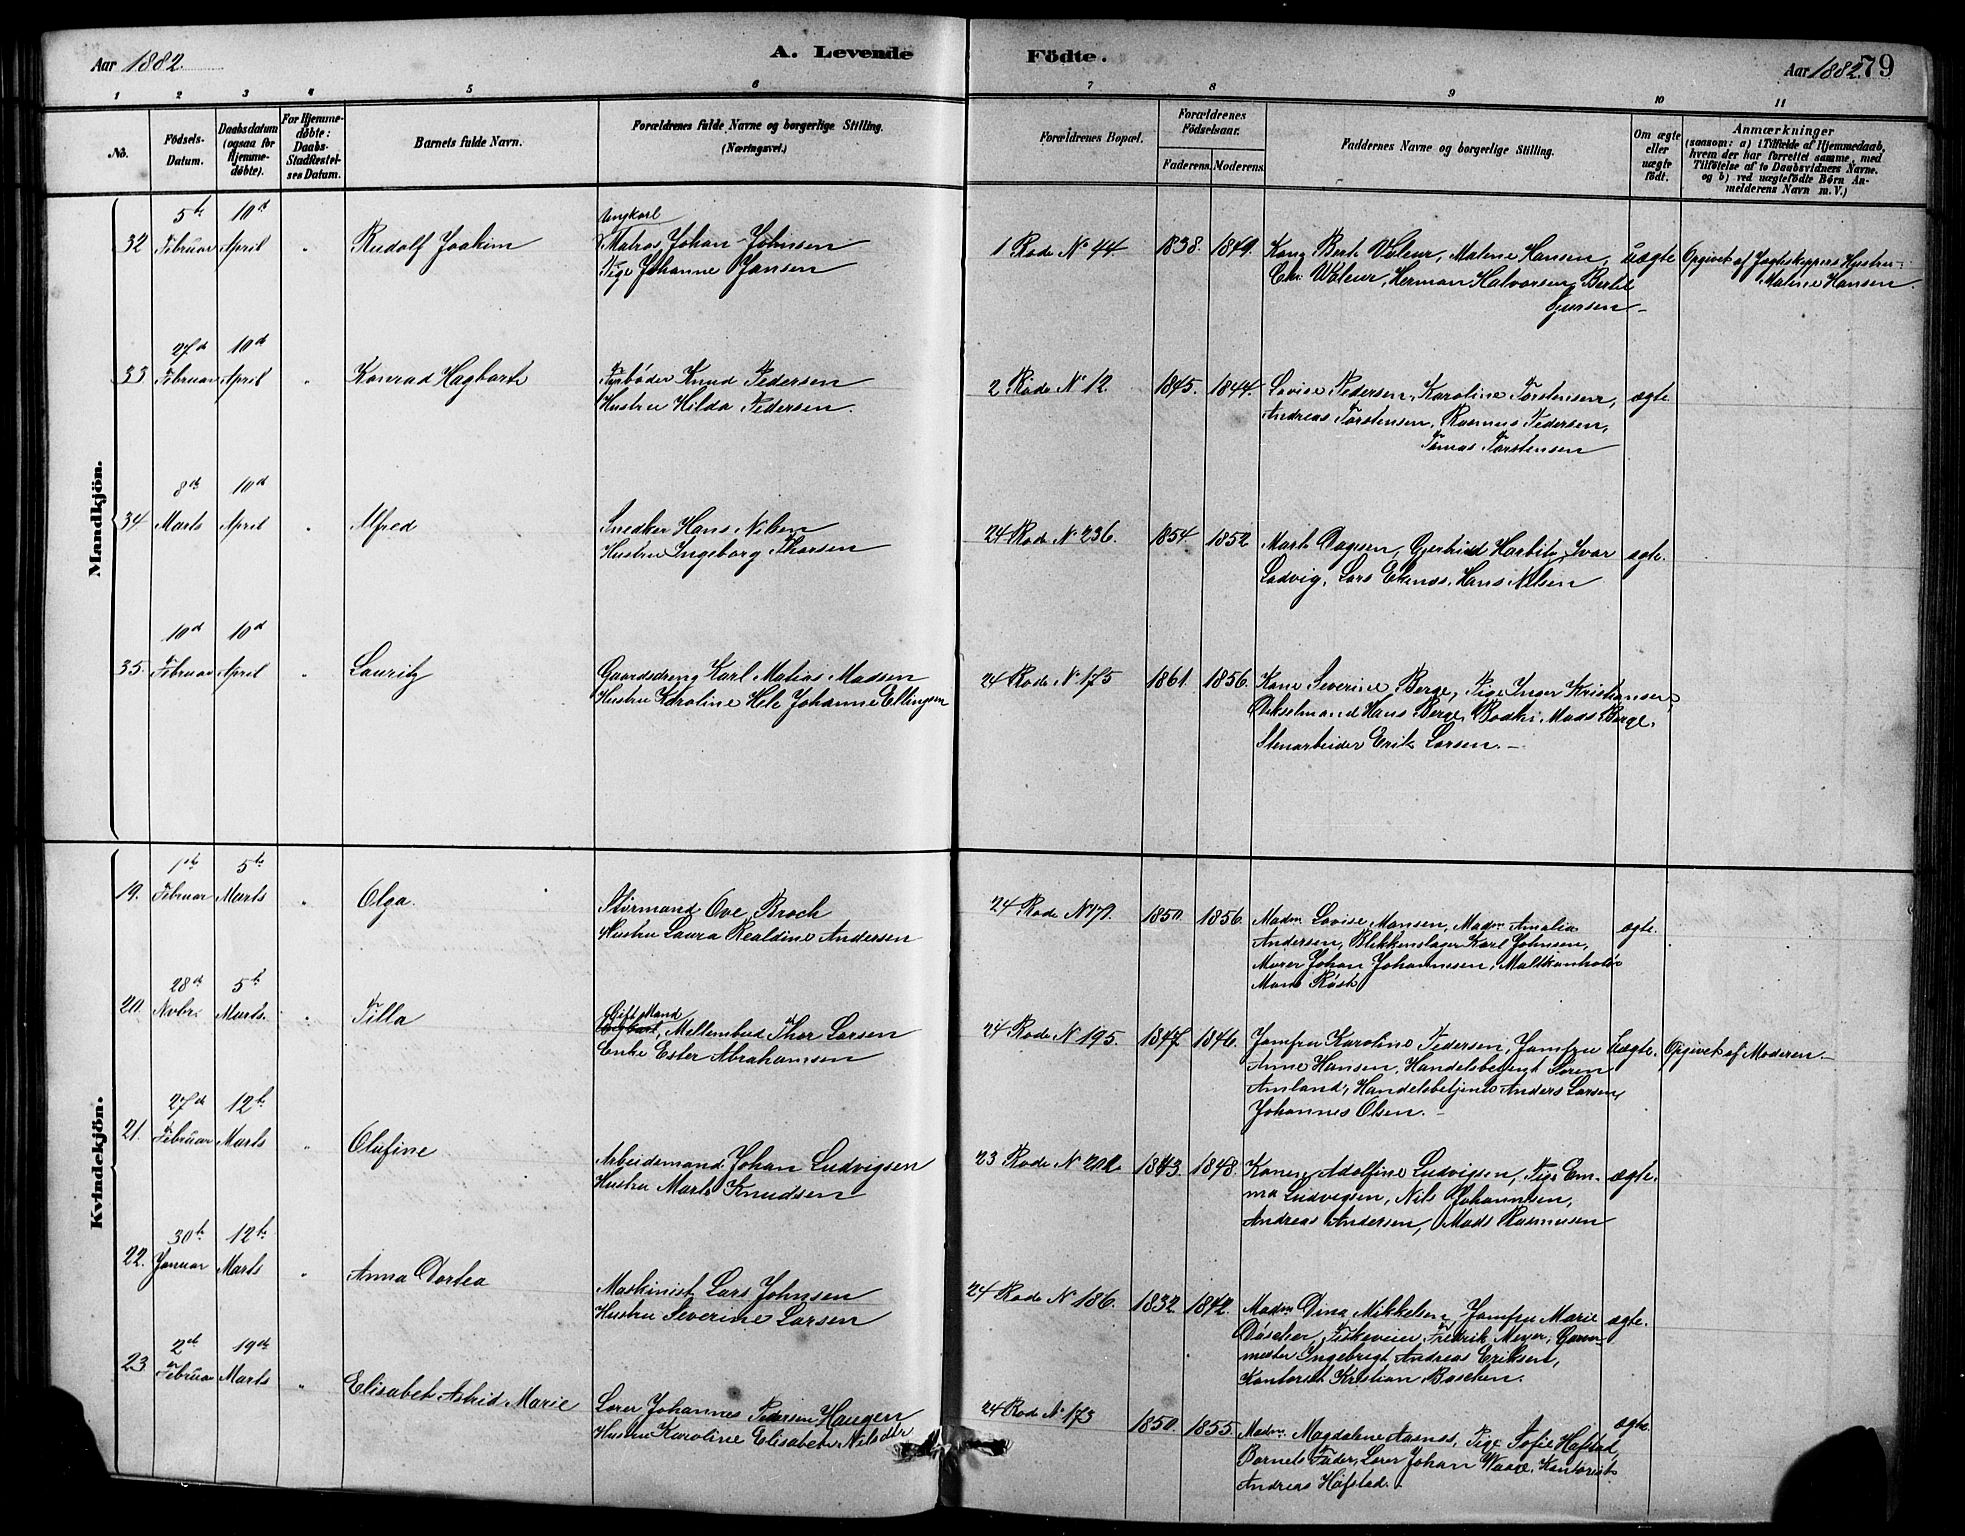 Aar 1882.
A. Levende Födte.
Aar 1882.
79
1 2 3 4 5 6 7 8 9 10 11
No.
Födsels-Datum.
Daabsdatum (ogsaa for Hjemme-döbte).
For Hjemme-döbte: Daabs-Stadfæstel-ses Datum.
Barnets fulde Navn.
Forældrenes fulde Navne og borgerlige Stilling.
(Næringsvei.)
Forældrenes Bopæl.
Forældrenes Födselsaar.
Faderens.
Moderens.
Faddernes Navne og borgerlige Stilling.
Om ægte eller uægte født.
Anmærkninger
(saasom: a) i Tilfælde af Hjemmedaab,
hvem der har forrettet samme, med
Tilföielse af to Daabsvidners Navne.
og b) ved uægtefödte Börn An-
melderens Navn m. V.)
Mandkjön.
32 5te Februar 10d April " Rudolf Joakim
Ungkarl
Matros Johan Johnsen
Pige Johanne Jansen
1 Rode No 44. 1838. 1849.
Kone Berte Valeur, Malene Hansen,
Chr. Valeur, Herman Halvorsen, Bertel
Gjersen
uægte
Opgivet af Jagtskippers Hustru
Malene Hansen
33 27d Februar 10d April " Konrad Hagbart
Fyrbøder Knud Pedersen
Hustru Hilda Pedersen.
2 Rode No 12 1845. 1844.
Lovise Pedersen, Karoline Torstensen,
Andreas Torstensen, Rasmus Pedersen,
Tomas Torstensen
ægte.
34 8de Marts 10d April " Alfred
Snedker Hans Nilsen
Hustru Ingeborg Thorsen
24 Rode No 236. 1854 1852
Marte Dagsen, Gjertrud Harbitz, Ivar
Ladvig, Lars Ekenæs, Hans Nilsen
ægte.
35. 10d Februar 10d April " Lauritz
Gaardsdreng Karl Matias Madsen
Hustru Karoline Hele Johanne Ellingsen
24 Rode No 175 1861. 1856.
Kone Severine Berge, Pige Inger Kristiansen,
Dikselmand Hans Berge, Mads Berge,
Stenarbeider Erik Larsen.
Kvindekjön.
19. 1te Februar 5te Marts " Olga.
Styrmand Ove Broch
Hustru Laura Realdine Andersen
24 Rode No 171. 1850. 1856.
Madm Lovise Monsen, Madm Amalia
Andersen, Blikkenslager Karl Johnsen,
Murer Johan Johannesen,
Mons Røsk
ægte.
20. 28de Novbr. 5te Marts. " Tilla
Gift Mand
Mellembud Thor Larsen
Enke Ester Abrahamsen
24 Rode No 195. 1847. 1846.
Jomfru Karoline Pedersen, Jomfru
Anne Hansen, Handelsbetjent Søren
Amland, Handelsbetjent Anders Larsen,
Johannes Olsen.
Uægte.
Opgivet af Moderen.
21. 27d Februar 12te Marts " Olufine
Arbeidsmand Johan Ludvigsen
Hustru Marte Knudsen
23 Rode No 202 1843. 1848.
Konen Adolfine Ludvigsen, Pige Em-
ma Ludvigsen, Nils Johannesen,
Andreas Andersen, Mads Rasmusen
ægte.
22. 30te Januar 12te Marts " Anna Dortea
Maskinist Lars Johnsen
Hustru Severine Larsen
24 Rode No 186. 1832. 1842.
Madm Dina Mikkelsen, Jomfru Marie
Døscher, Fiskeveier Fredrik Meyer,
Ingebrigt Andreas Eriksen,
Kontorist Kristian Baschen.
ægte.
23 2de Februar 19de Marts " Elisabet Astrid Marie
Lærer Johannes Pedersen Haugen
Hustru Karoline Elisabet Nilsdtr
24 Rode No 173 1850. 1855.
Madm Magdalene Aasnæs, Pige Sofie Hafstad,
Barnets Fader, Lærer Johan Waage, Kontorist
Andreas Hafstad.
ægte.